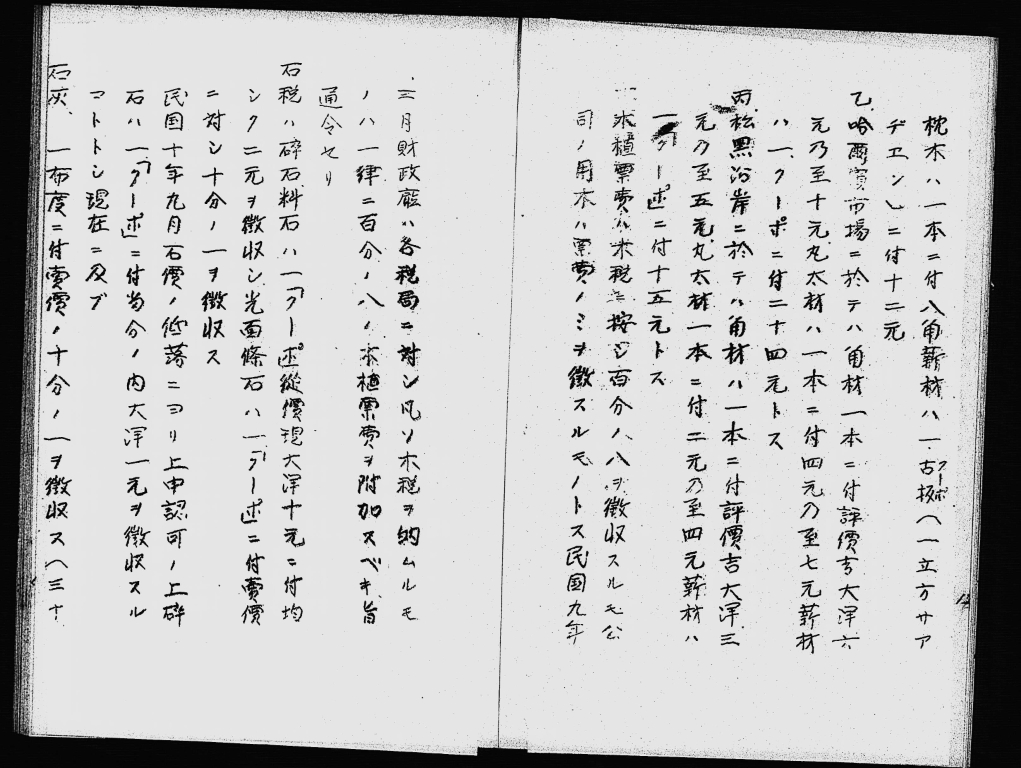 枕木ハ一本ニ付八角薪材ハ一古扱(一立方サア
クーポ
ヂエン)ニ付十二元
乙、哈爾賓市場ニ於テハ角材一本ニ付評價吉大洋六
元乃至十元丸太材ハ一本ニ付四元乃至七元薪材
ハ一、クーポニ付二十四元トス
丙、松黒沿岸ニ於テハ角材ハ一本ニ付評價吉大洋三
元乃至五元丸太材一本ニ付二元乃至四元薪材ハ
一「クーポ」ニ付十五元トス
木植票費ハ木税ニ按シ百分ノ八ヲ徴収スルモ公
司ノ用木ハ票費ノミヲ徴スルモノトス民国九年
三月財政廳ハ各税局ニ対シ凡ソ木税ヲ納ムルモ
ノハ一律ニ百分ノ八ノ木植票費ヲ附加スベキ旨
通令セリ
石税ハ碎石料石ハ一「クーポ」從價現大洋十元ニ付均
シク二元ヲ徴収シ光面條石ハ一「クーポ」ニ付賣價
ニ対シ十分ノ一ヲ徴収ス
民国十年九月石價ノ低落ニヨリ上申認可ノ上碎
石ハ一「クーポ」ニ付当分ノ内大洋一元ヲ徴収スル
コトトシ現在ニ及ブ
石灰、一布度ニ付賣價ノ十分ノ一ヲ徴収ス(三十